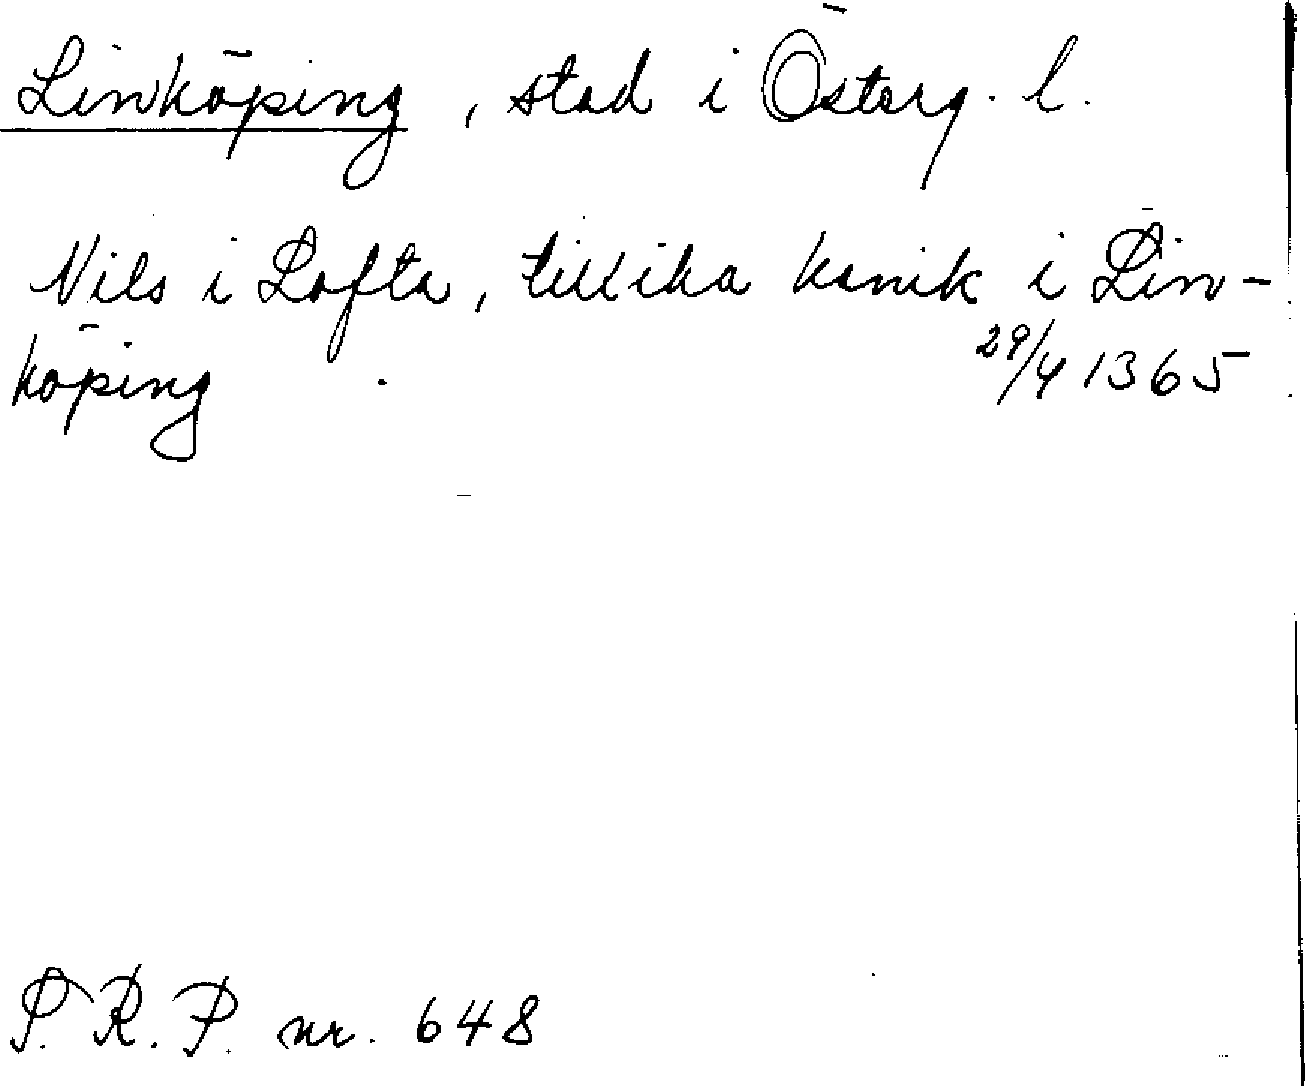 Linköping, stad i Österg. l.
Nils i Lofta, tillika kanik i Lin-
köping 29/4 1365
S.R.P. nr. 648